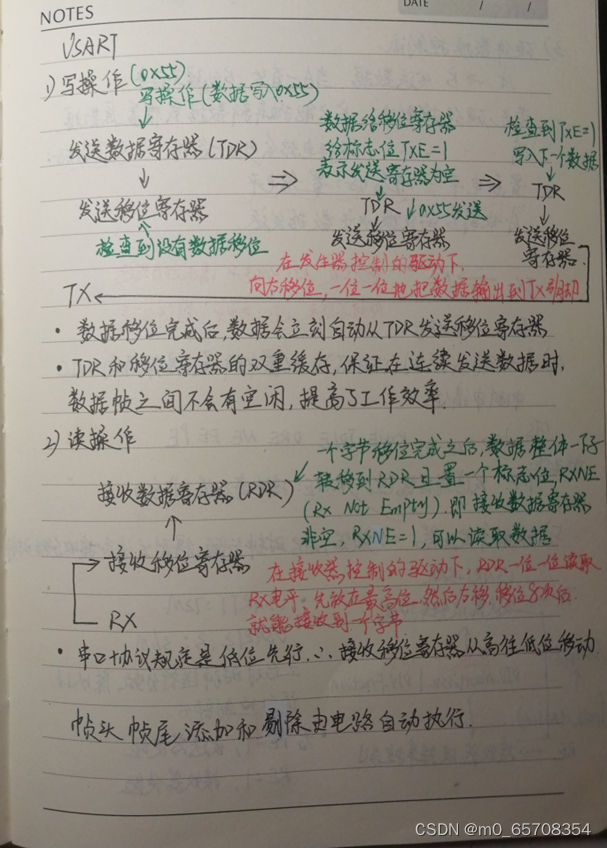 NOTES
DATE / /
USART
1) 写操作(0x55)
写操作(数据写入0x55)
发送数据寄存器(TDR)
发送移位寄存器
检查到没有数据移位
数据给移位寄存器
给标志位TXE=1
表示发送寄存器为空
TDR
0x55发送
发送移位寄存器
检查到TXE=1
写入下一个数据
TDR
发送移位
寄存器.
在发生器控制的驱动下,
向右移位,一位一位地把数据输出到TX引脚
TX
· 数据移位完成后,数据会立刻自动从TDR发送移位寄存器
· TDR和移位寄存器的双重缓存,保证在连续发送数据时,
数据帧之间不会有空闲,提高了工作效率.
2) 读操作
一个字节移位完成之后,数据整体一下子
转移到RDR且置一个标志位,RXNE
(Rx Not Empty).即接收数据寄存器
非空,RXNE=1,可以读取数据
接收数据寄存器(RDR)
接收移位寄存器
RX
在接收器控制的驱动下,RDR一位一位读取
RX电平,先放在最高位,然后右移,移位8次后
就能接收到一个字节
· 串口协议规定是低位先行.∴接收移位寄存器从高往低位移动
帧头帧尾添加和剔除由电路自动执行.
CSDN @m0_65708354